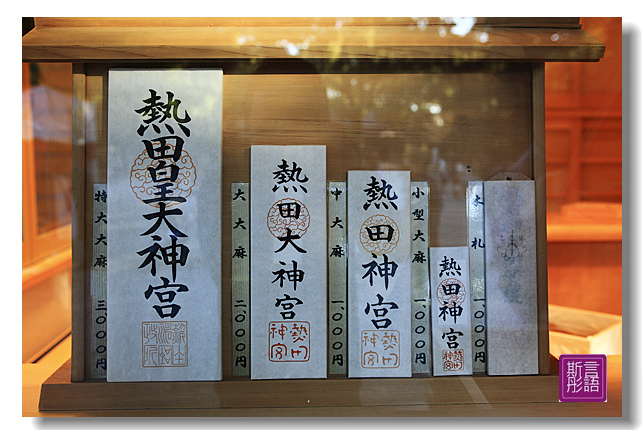 特大大麻 三、〇〇〇円
熱田皇大神宮
大大麻 二、〇〇〇円
熱田大神宮
熱田神宮
中大麻 一、〇〇〇円
熱田神宮
熱田神宮
小型大麻 一、〇〇〇円
熱田神宮
熱田神宮
木札 一、〇〇〇円
言語
斯彤